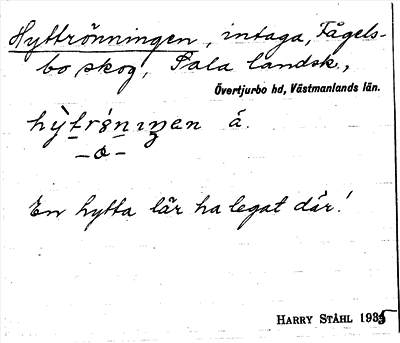 Hyttrönningen, intaga, Fågels-
bo skog, Sala landsk.,
Övertjurbo hd, Västmanlands län.
hỳtrönıŋen å.
En hytta lär ha legat där!
HARRY STÅHL 1935